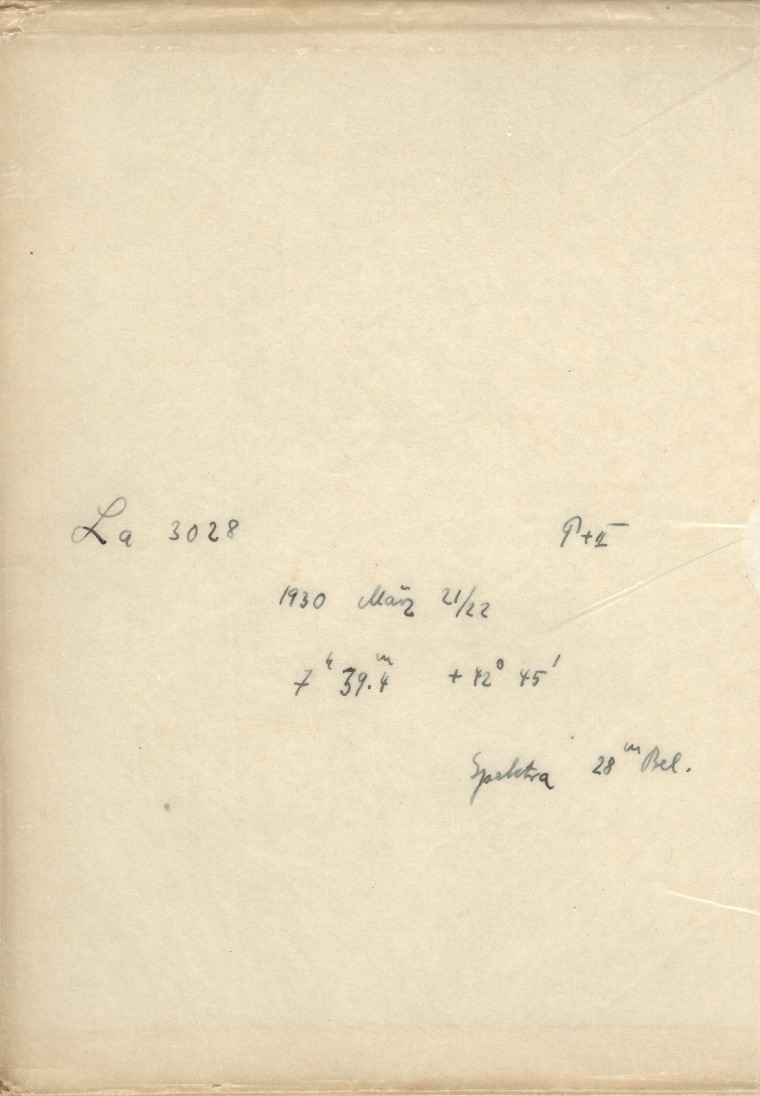 La 3028 P+II
1930 März 21/22
7ʰ 39.4ᵐ +42° 45'
Spektra 28ᵐ Bel.